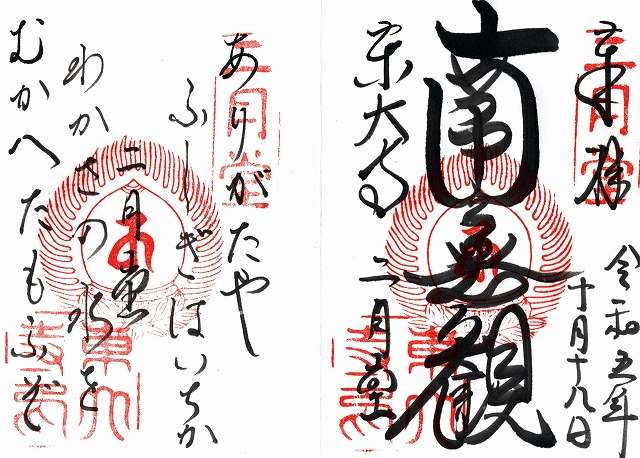 奉拝
二月堂
令和五年
十月十八日
南無観
東大寺
二月堂
二月堂
ありがたや
ふしぎはいちか
二月堂
わかさの水を
むかへたもふぞ